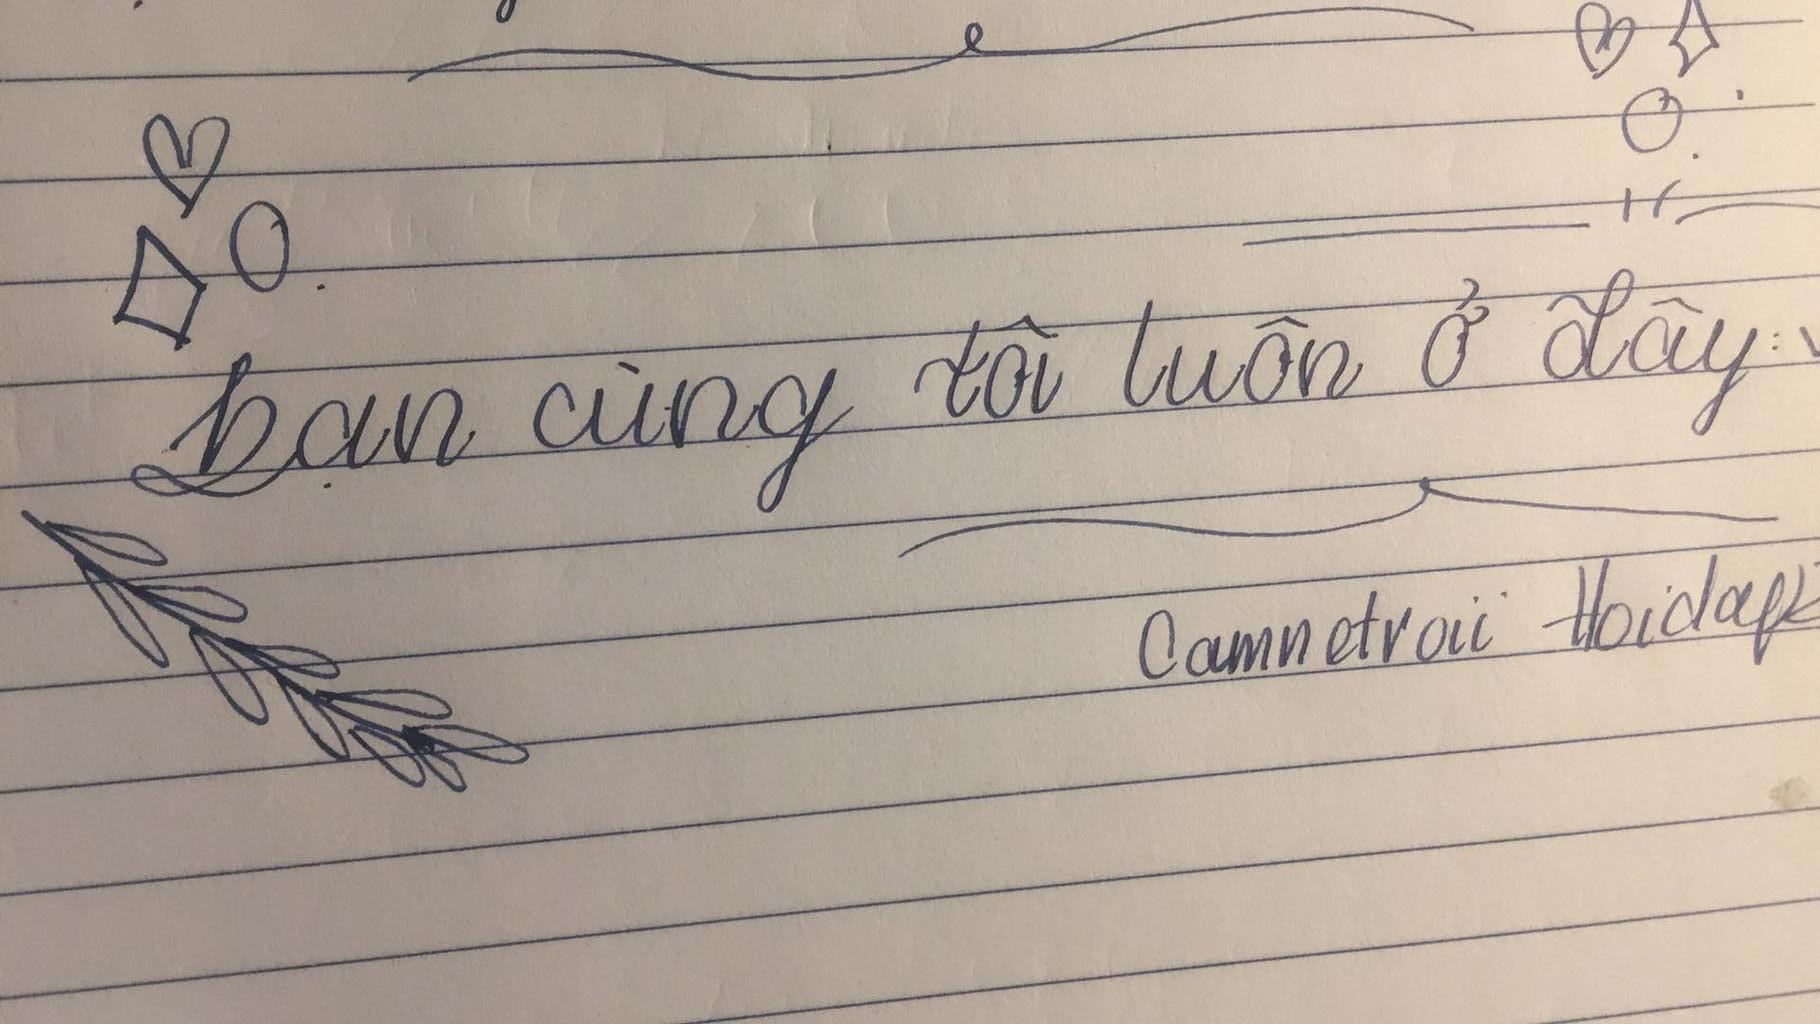 bạn cùng tôi luôn ở đây :v
Camnetroii Hoidap